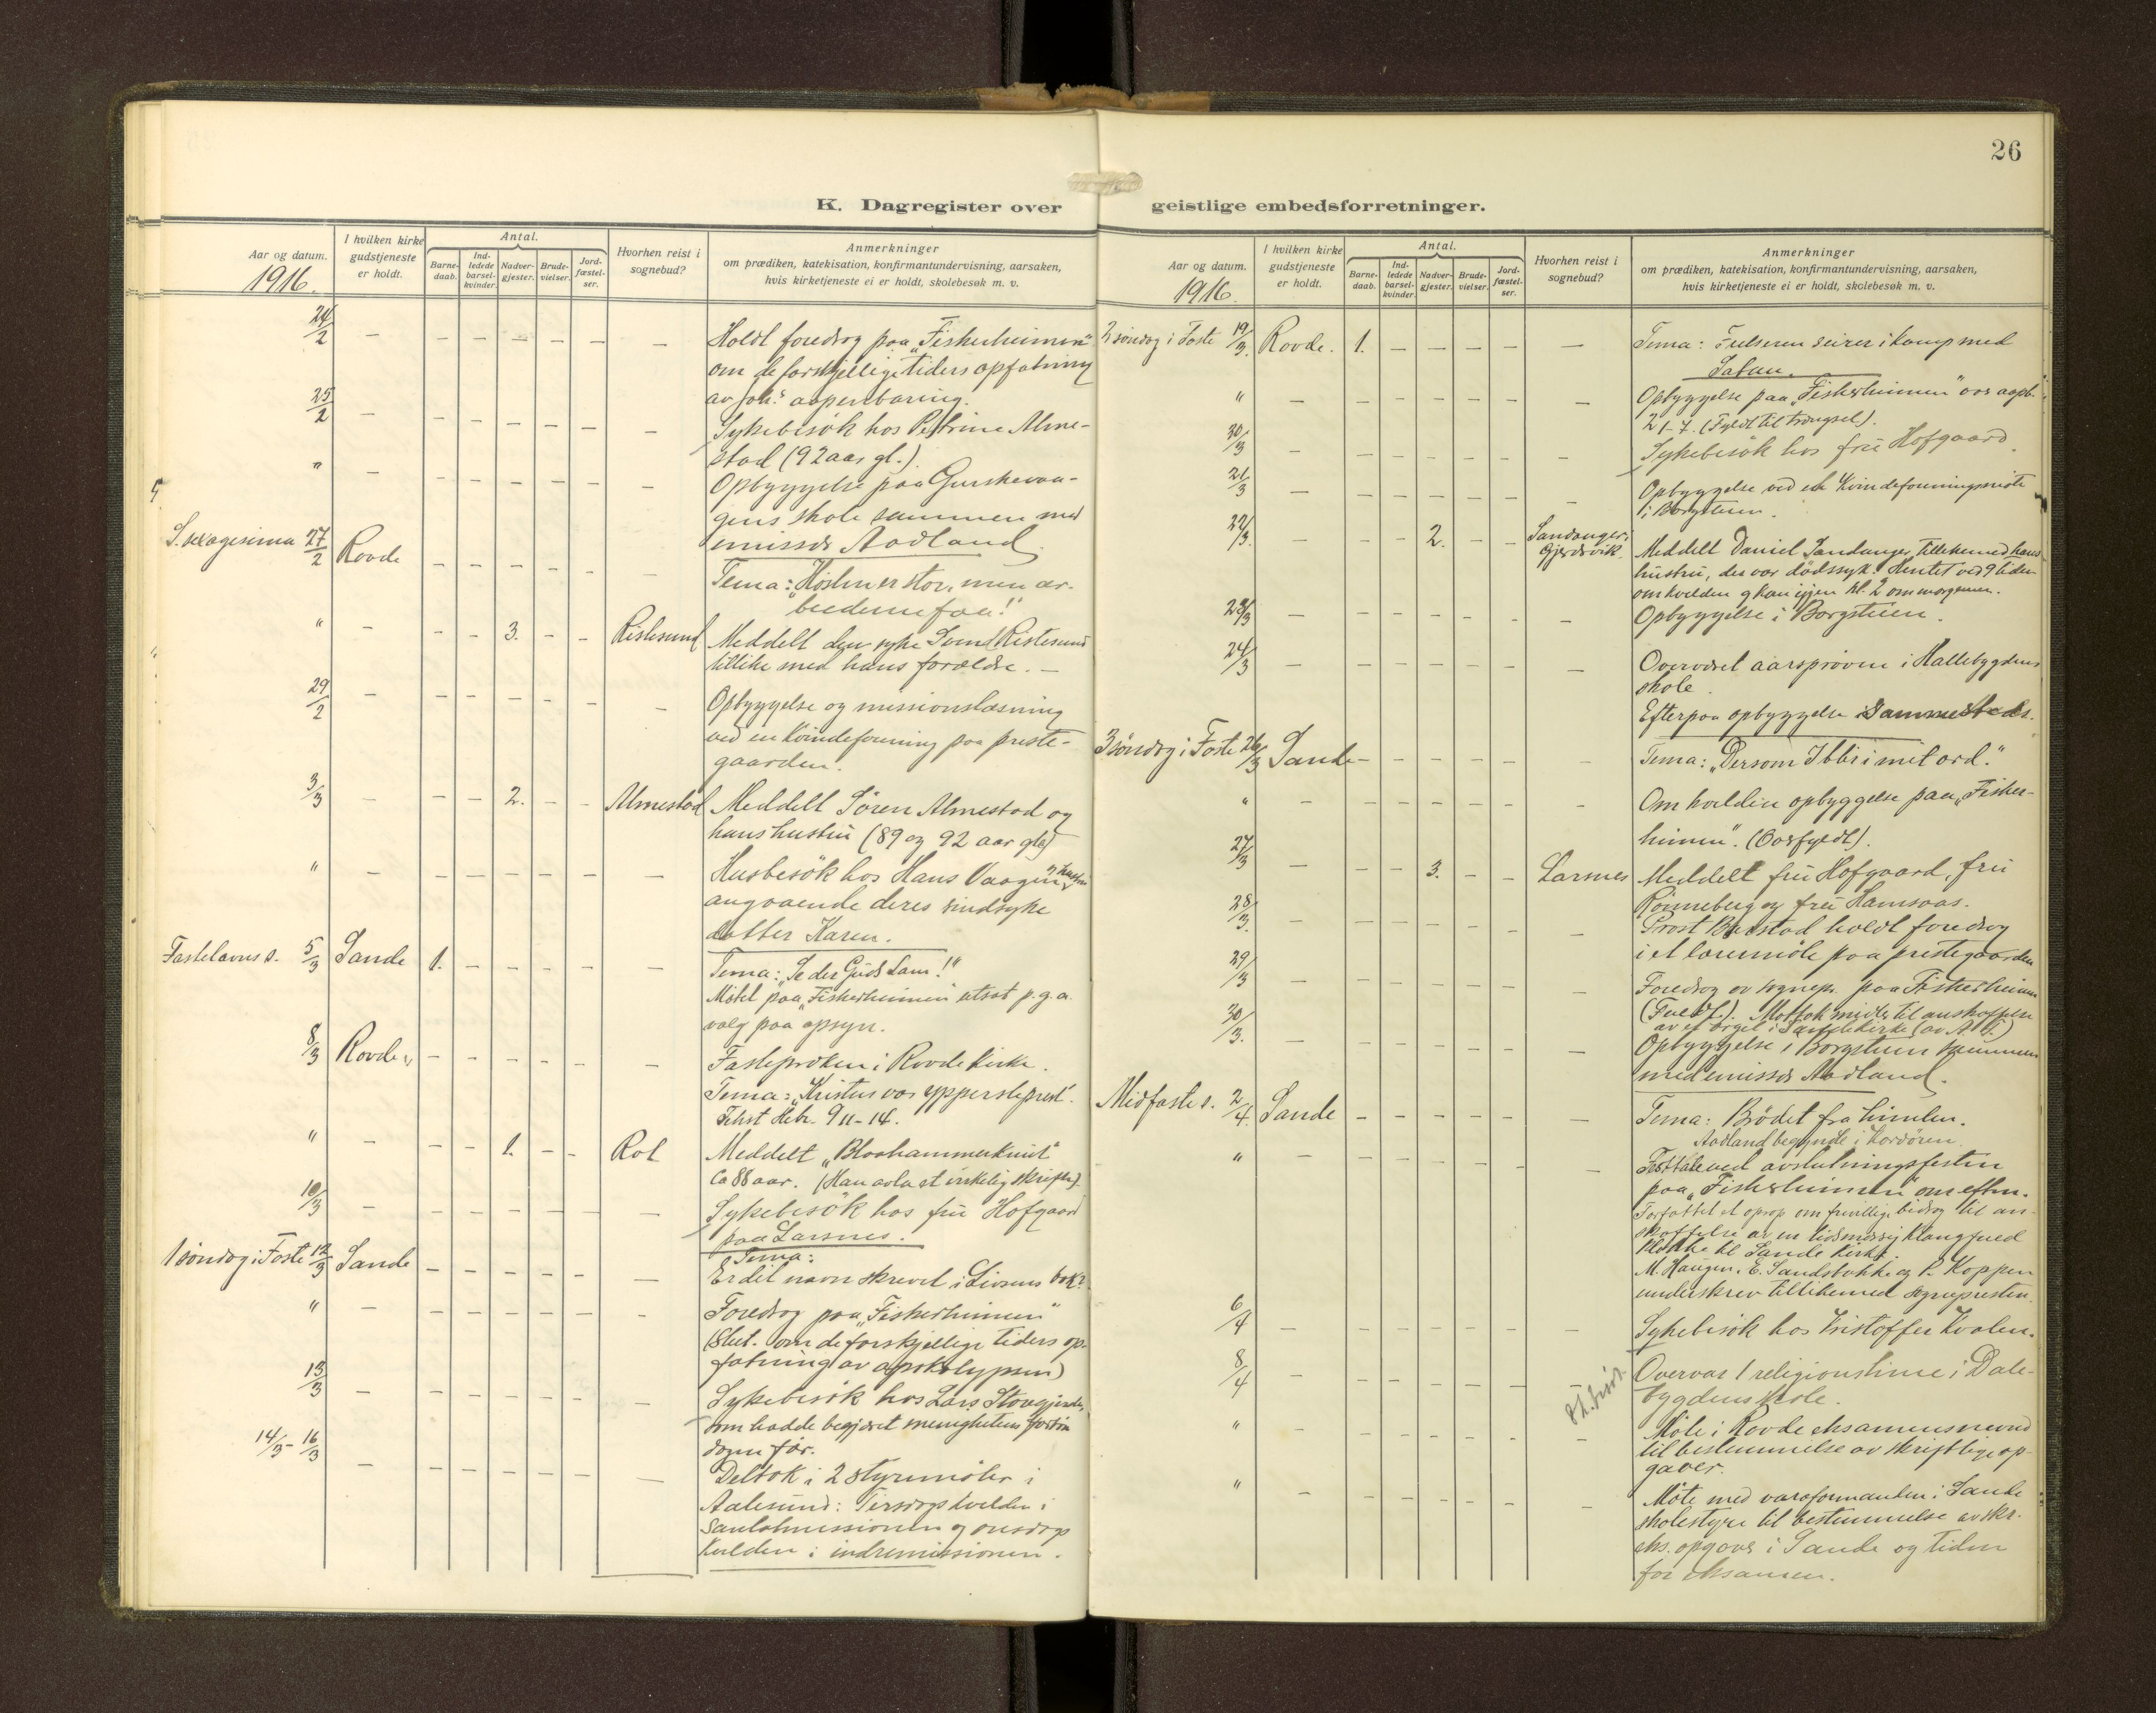 26
K. Dagregister over geistlige embedsforretninger.
Aar og datum. 1916.
I hvilken kirke gudstjeneste er holdt.
Antal.
Barne-daab.
Ind-ledede barsel-kvinder.
Nadver-gjester.
Brude-vielser.
Jord-fæstel-ser.
Hvorhen reist i sognebud?
Anmerkninger
om prædiken, katekisation, konfirmantundervisning, aarsaken,
hvis kirketjeneste ei er holdt, skolebesøk m. v.
24/2 – – – – – – – Holdt foredrag paa „Fiskerheimen"
om de forskjellige tiders opfatning
av Joh.s aapenbaring.
25/2 – – – – – – – Sykebesök hos Petrine Alme-
stad (92 aar gl.).
" – – – – – – – Opbyggelse paa Gurskevaa-
gens skole sammen med
emissær Aadland.
S. sexagesima 27/2 Rovde – – – – – – Tema: „Høsten er stor, men ar-
beiderne faa!"
" – – – 3. – – Ristesund Meddelt den syke Svend Ristesund
tillike med hans forældre. –
29/2 – – – – – – – Opbyggelse og missionslæsning
ved en kvindeforening paa preste-
gaarden.
3/3 – – – 2. – – Almestad Meddelt Sören Almestad og
hans hustru (89 og 92 aar gle)
" – – – – – – – Husbesök hos Hans Vaagen og hustru
angaaende deres sindsyke
datter Karen.
Fastelavns s. 5/3 Sande 1. – – – – – Tema: „Se der Guds Lam!"
Mötet paa „Fiskerheimen" utsat p.g.a.
valg paa opsyn.
8/3 Rovde – – – – – – Fasteprœken i Rovde kirke.
Tema: „Kristus vor ypperstеprest".
Tekst Hebr. 9 11-14.
" – – – 1. – – Rot Meddelt „Blaahammerknut"
Ca 88 aar. (Han avla et virkelig skrifte).
10/3 – – – – – – – Sykebesök hos fru Hofgaard
paa Larsnes.
1 söndag i Faste 12/3 Sande – – – – – – Tema:
Er dit navn skrevet i Livsens bok?
" – – – – – – – Foredrag paa „Fiskerheimen"
(Slut. om de forskjellige tiders op-
fatning av apokalypsen)
13/3 – – – – – – – Sykebesök hos Lars
som hadde begjæret menighetens forbön
dagen för.
14/3 – 16/3 – – – – – – – Deltok i 2 styremöter i
Aalesund: Tirsdags kvelden i
Santalmissionen og onsdags
kvelden i indremissionen.
Aar og datum. 1916.
I hvilken kirke gudstjeneste er holdt.
Antal.
Barne-daab.
Ind-ledede barsel-kvinder.
Nadver-gjester.
Brude-vielser.
Jord-fæstel-ser.
Hvorhen reist i sognebud?
Anmerkninger
om prædiken, katekisation, konfirmantundervisning, aarsaken,
hvis kirketjeneste ei er holdt, skolebesøk m. v.
2 söndag i Faste 19/3. Rovde. 1. – – – – – Tema: Frelseren seirer i kamp med
Satan.
" – – – – – – – Opbyggelse paa „Fiskerheimen" over aapb.
2 1-7. (Fyldt til trængsel).
20/3 – – – – – – – Sykebesök hos fru Hofgaard.
21/3 – – – – – – – Opbyggelse ved et kvindeforeningsmöte
i Borgstuen.
22/3. – – – 2. – – Sandanger i Gjerdsvik Meddelt Daniel Sandanger tillikemed hans
hustru, der var dödssyk. Hentet ved 9 tiden
om kvelden og kom igjen kl. 2 om morgenen.
23/3 – – – – – – – Opbyggelse i Borgstuen.
24/3 – – – – – – – Overværet aarspröven i Hallebygdens
skole.
Efterpaa opbyggelse sammesteds.
3 söndag i Faste 26/3 Sande – – – – – – Tema: „Dersom I blir i mit ord."
" – – – – – – – Om kvelden opbyggelse paa „Fisker-
heimen". (Overfyldt).
27/3 – – – 3. – – Larsnes Meddelt fru Hofgaard, fru
Rönneberg og fru Hamsaas.
28/3. – – – – – – – Prost holdt foredrag
i et læremöte paa prestegaarden
29/3 – – – – – – – Foredrag av sognepr. paa Fiskerheimen
(Fuldt). Mottok midler til anskaffelse
av et orgel i Sande kirke
30/3. – – – – – – – Opbyggelse i Borgstuen sammen
med emissær Aadland.
Midfaste s. 2/4. Sande – – – – – – Tema: Brödet fra himlen.
Aadland begyndte i kordören.
" – – – – – – – Festtale ved avslutningsfesten
paa „Fiskerheimen" om efterm.
Forfattet et oprop om frivillige bidrag til an-
skaffelse av en tidsmæssig klangfuld
klokke til Sande kirke.
M. Haugen, E. Sandsbakk og P. Koppen
underskrev tillikemed sognepresten.
6/4 – – – – – – – Sykebesök hos Kristoffer Kvalen.
8/4 – – – – – – – Overvar 1 religionstime i Dale-
bygdens skole.
" – – – – – – – Möte i Rovde eksamensnevnd
til bestemmelse av skriftlige op-
gaver.
" – – – – – – – Möte med varaformanden i Sande
skolestyre til bestemmelse av skr.
eks. opgaver i Sande og tiden
for eksamen.